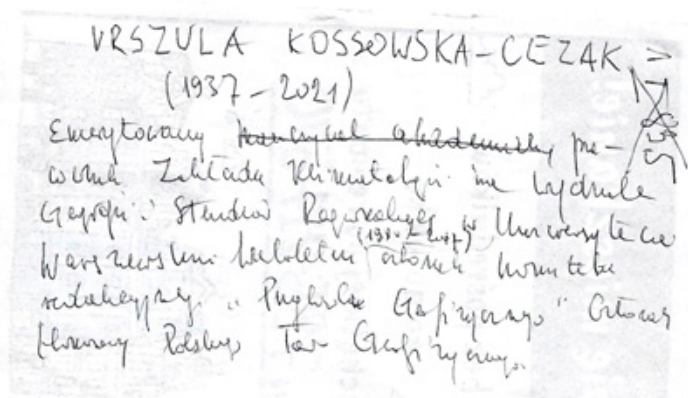 URSZULA KOSSOWSKA-CEZAK
(1937-2021)
Emerytowany nauczyciel akademicki, pra-
cownik Zakładu Klimatologii na Wydziale
Geografii i Studiów Regionalnych w Uniwersytecie
Warszawskim wieloletni członek komitetu
redakcyjnego „Przeglądu Geofizycznego" Członek
Honorowy Polskiego Tow Geofizycznego.